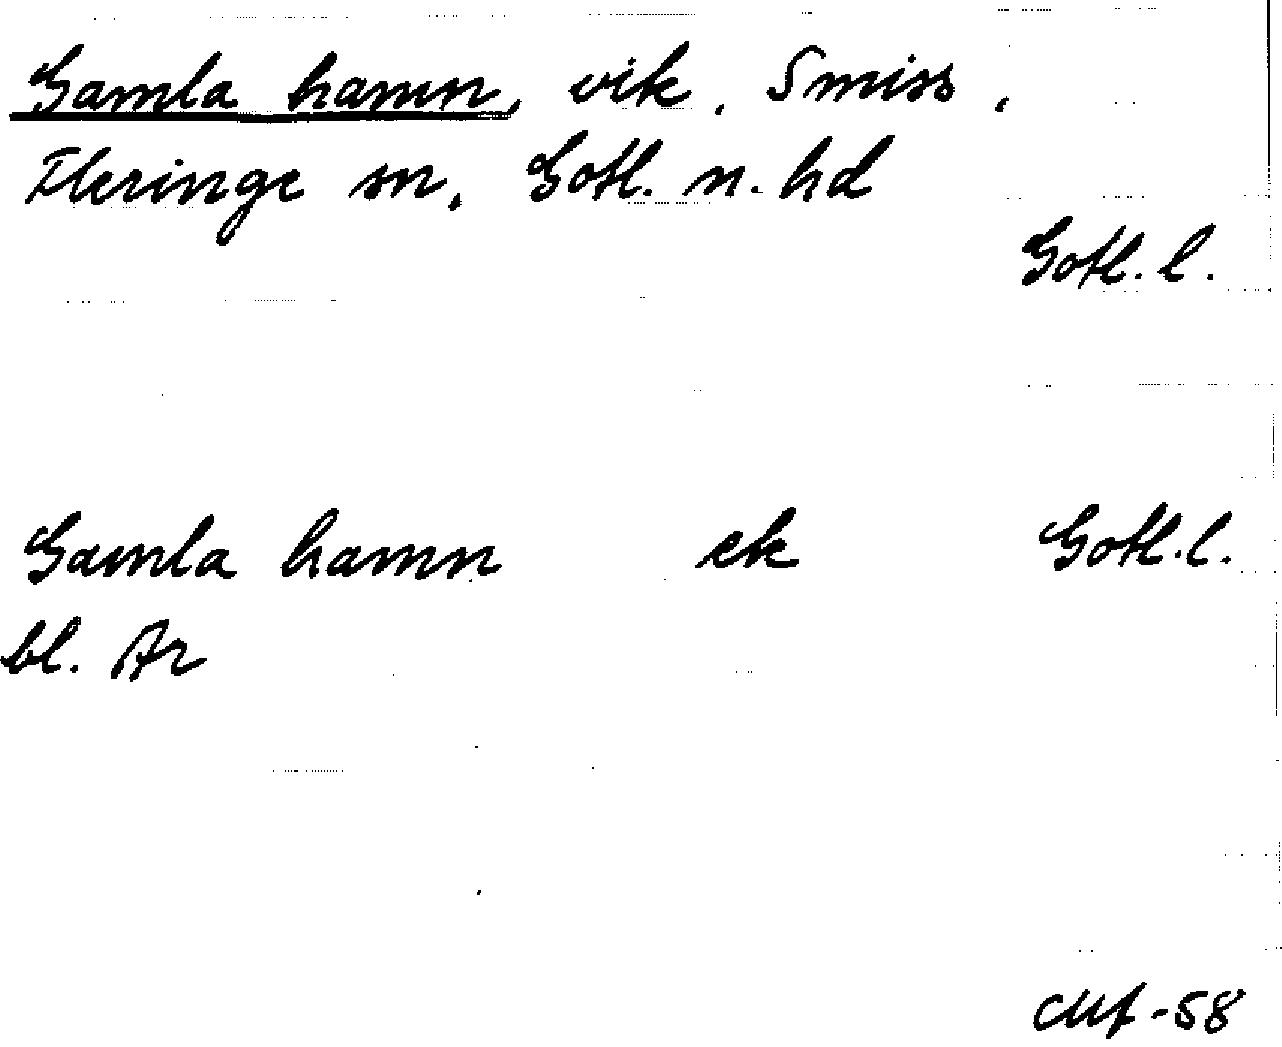 Gamla hamn, vik, Smiss,
Fleringe sn, Gotl. n. hd
Gotl. l.
Gamla hamn ek Gotl. l.
bl. Ar
-58